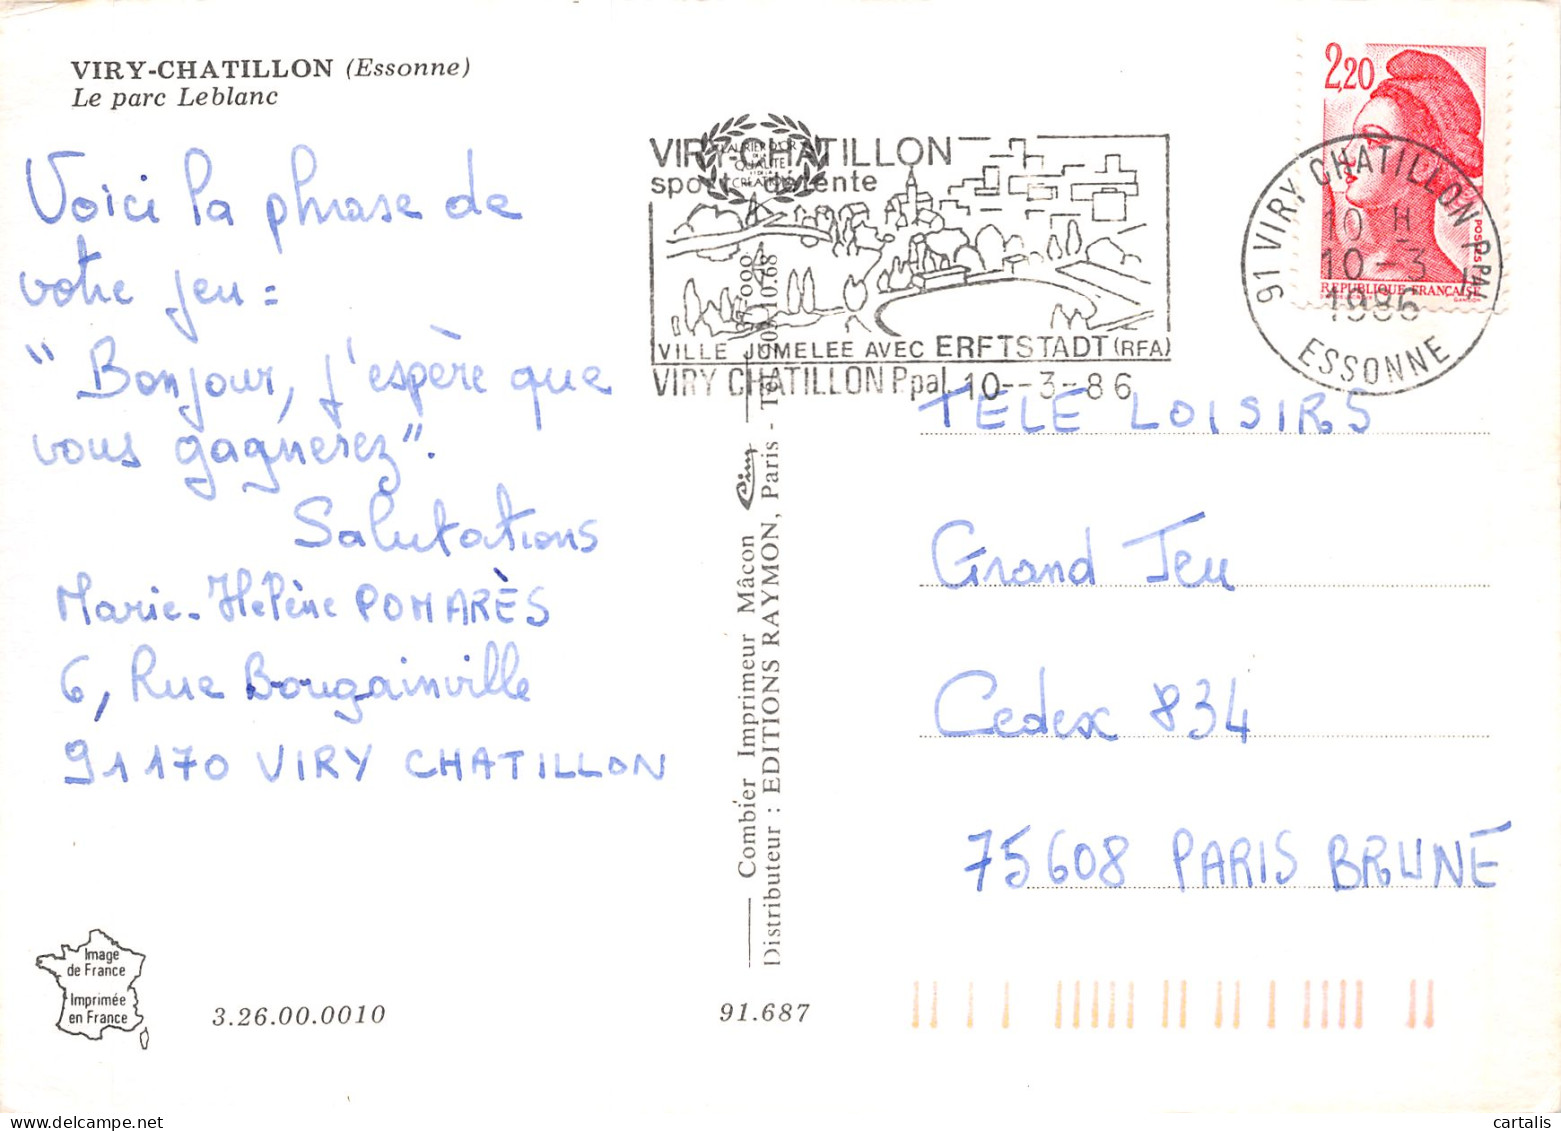 VIRY-CHATILLON (Essonne)
Le parc Leblanc
Voici la phrase de
votre jeu :
" Bonjour, j'espère que
vous gagnerez".
Salutations
Marie-Hélène POMARÈS
6, Rue Bougainville
91170 VIRY CHATILLON
Image
de France
Imprimée
en France
3.26.00.0010
91.687
Combier Imprimeur Mâcon
Distributeur : EDITIONS RAYMON, Paris -
LAURIER D'OR
QUALITE
CREATION
VIRY-CHATILLON
sport détente
VILLE JUMELEE AVEC ERFTSTADT (RFA)
VIRY CHATILLON Ppal 10--3-86
2,20
POSTES
REPUBLIQUE FRANÇAISE
GANDON
91 VIRY CHATILLON PPAL
10 H
10-3
1986
ESSONNE
TELE LOISIRS
Grand Jeu
Cedex 834
75608 PARIS BRUNE
cartalis